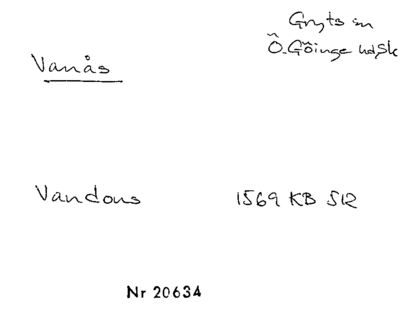 Gryts sn
Ö. Göinge hd, Sk
Vanås
Vandous 1569 KB 512
Nr 20634